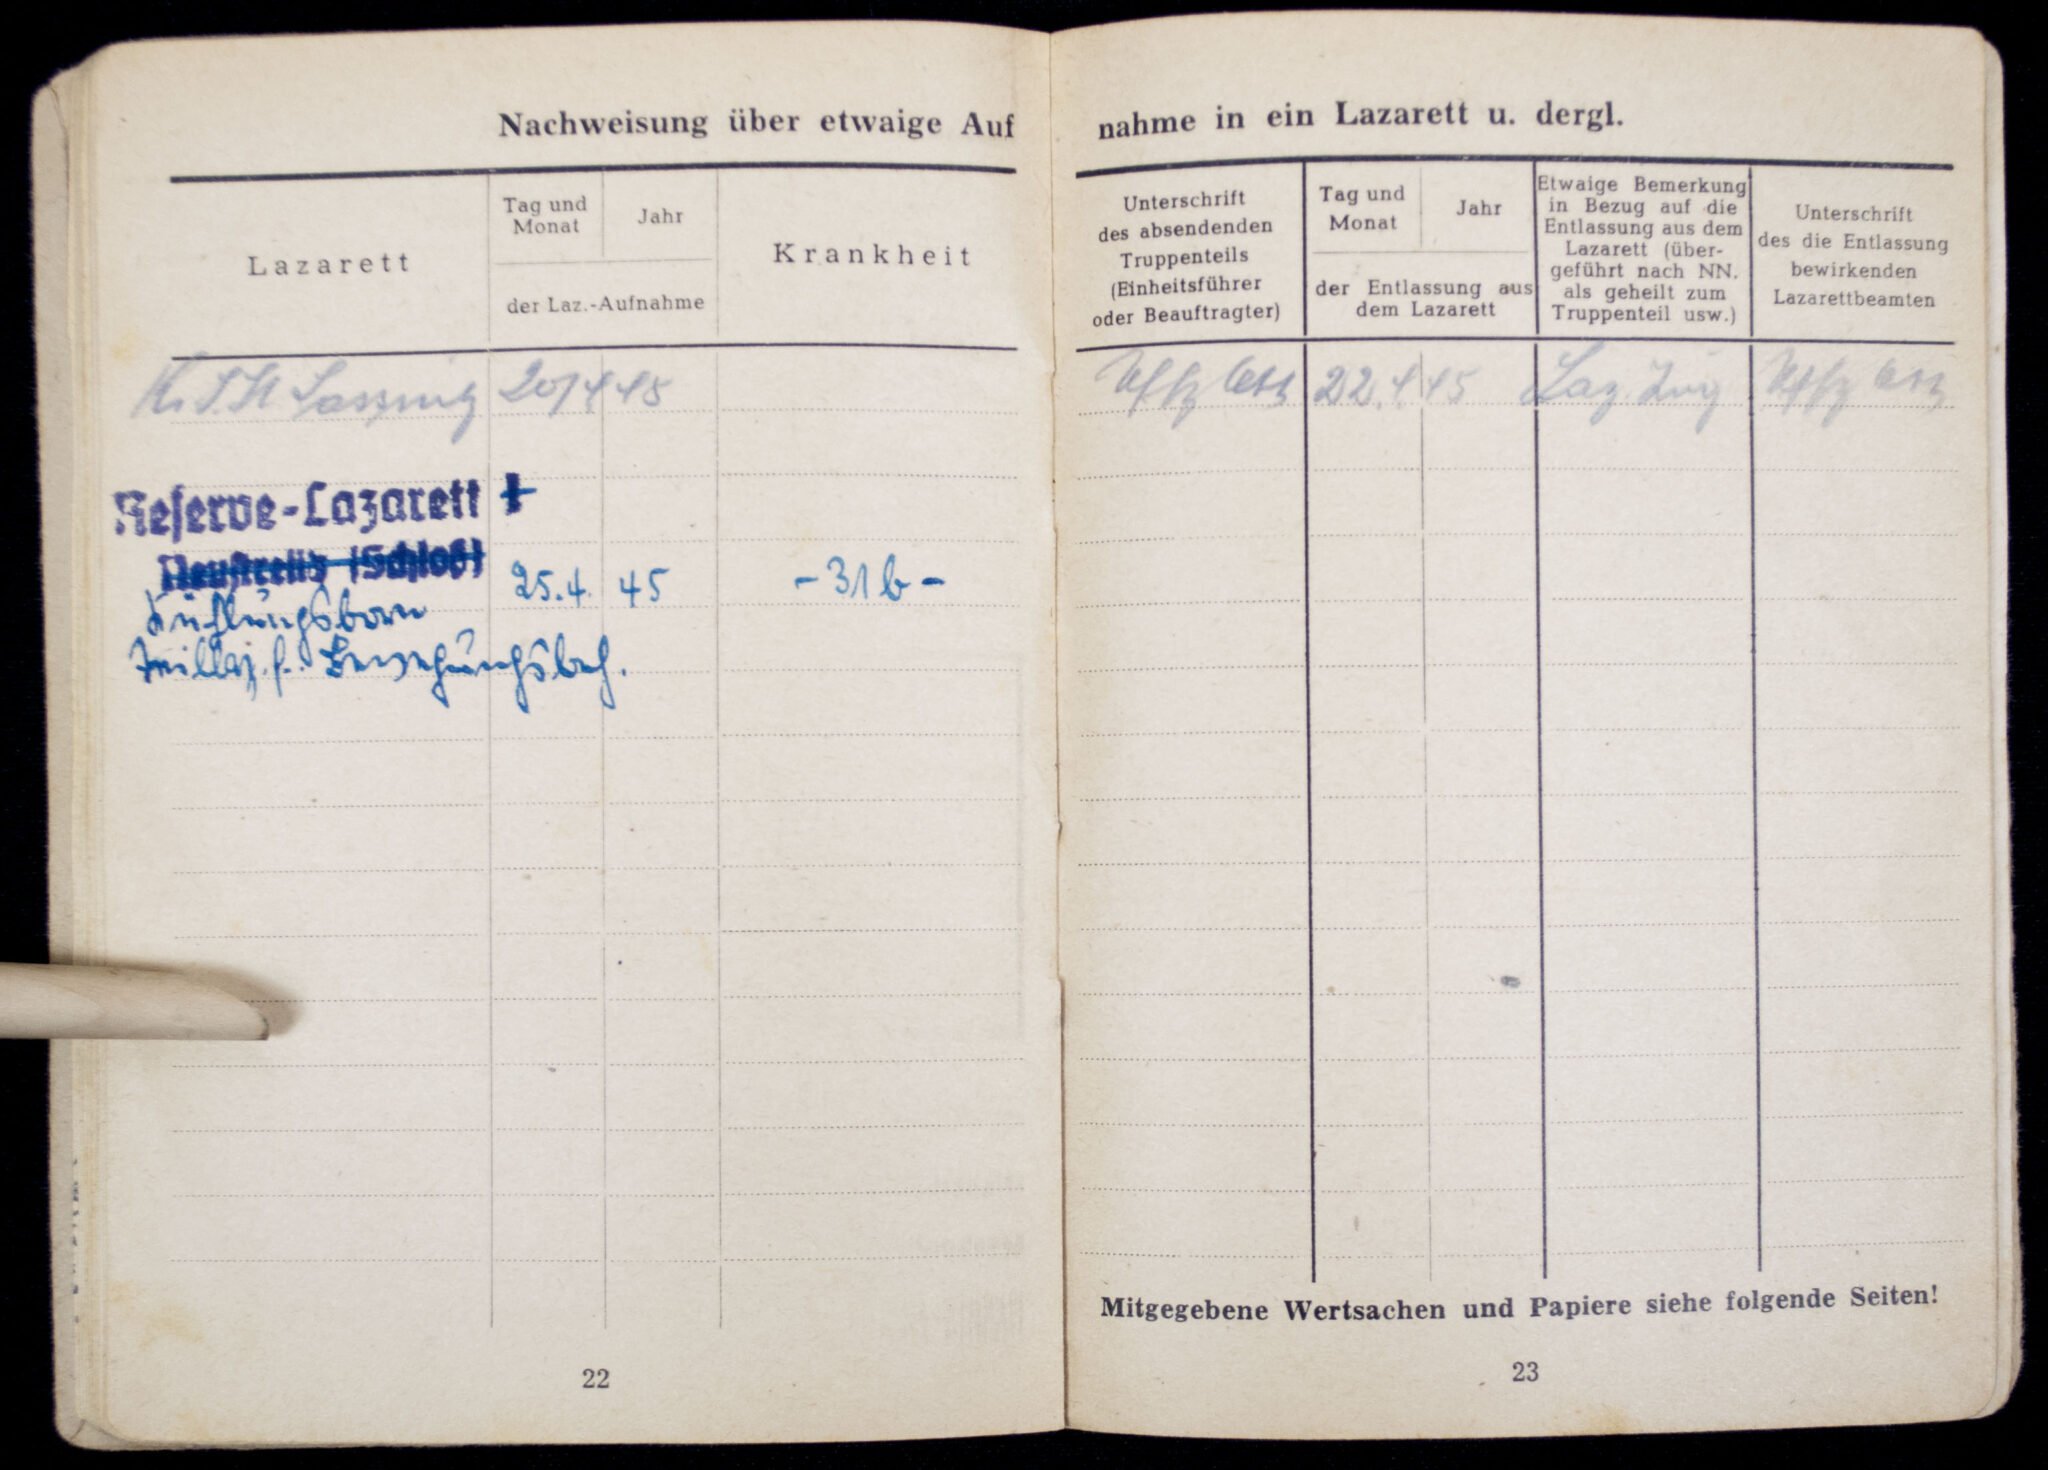 Nachweisung über etwaige Auf
Lazarett
Tag und
Monat
Jahr
der Laz.-Aufnahme
Krankheit
20/4 45
Reserve-Lazarett I
Neustrelitz (Schloß)
25.4. 45 -31b-
Kühlungsborn
22
nahme in ein Lazarett u. dergl.
Unterschrift
des absendenden
Truppenteils
(Einheitsführer
oder Beauftragter)
Tag und
Monat
Jahr
der Entlassung aus
dem Lazarett
Etwaige Bemerkung
in Bezug auf die
Entlassung aus dem
Lazarett (über-
geführt nach NN.
als geheilt zum
Truppenteil usw.)
Unterschrift
des die Entlassung
bewirkenden
Lazarettbeamten
Uffz 22.4 45 Laz. Zug Uffz
Mitgegebene Wertsachen und Papiere siehe folgende Seiten!
23